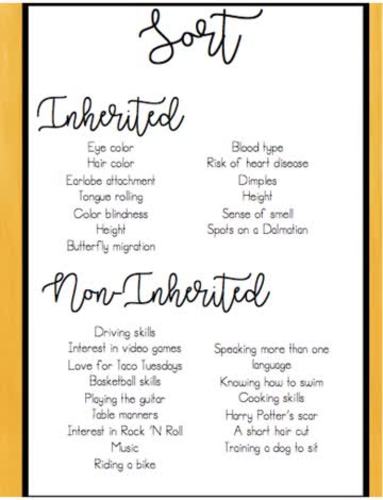 Sort
Inherited
Eye color
Hair color
Earlobe attachment
Tongue rolling
Color blindness
Height
Butterfly migration
Blood type
Risk of heart disease
Dimples
Height
Sense of smell
Spots on a Dalmation
Non-Inherited
Driving skills
Interest in video games
Love for Taco Tuesdays
Basketball skills
Playing the guitar
Table manners
Interest in Rock 'N Roll
Music
Riding a bike
Speaking more than one
language
Knowing how to swim
Cooking skills
Harry Potter's scar
A short hair cut
Training a dog to sit